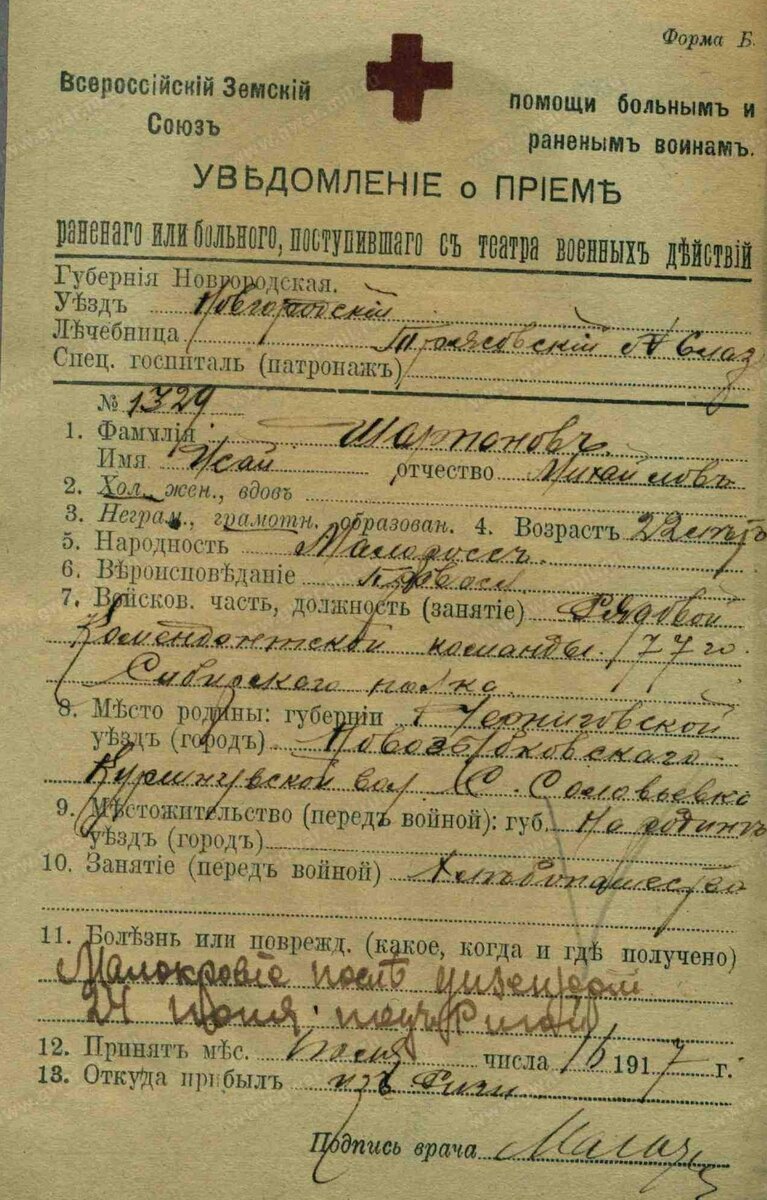 Форма Б.
Всероссійскій Земскій
Союзъ
помощи больнымъ и
раненымъ воинамъ.
УВѢДОМЛЕНІЕ о ПРІЕМѢ
раненаго или больного, поступившаго съ театра военныхъ дѣйствій
Губернія Новгородская.
Уѣздъ Новгородскій
Лѣчебница
Спец. госпиталь (патронажъ)
№ 1329
1. Фамилія Шарпоновъ.
Имя Исай отчество Михайловъ
2. Хол. жен., вдовъ
3. Неграм., грамотн. образован. 4. Возрастъ 22 лѣтъ
5. Народность Малороссъ.
6. Вѣроисповѣданіе Правосл.
7. Войсков. часть, должность (занятіе) Рядовой
Комендантской команды 77го
Сибирского полка.
8. Мѣсто родины: губерніи Черниговской
уѣздъ (городъ) Новозыбковскаго
вол. С. Соловьевка
9. Мѣстожительство (передъ войной): губ. На родинѣ
уѣздъ (городъ)
10. Занятіе (передъ войной) Хлѣбопашество
11. Болѣзнь или поврежд. (какое, когда и гдѣ получено)
Малокровіе послѣ
24 іюня. под Ригой
12. Принятъ мѣс. числа 1917 г.
13. Откуда прибылъ изъ Риги
Подпись врача